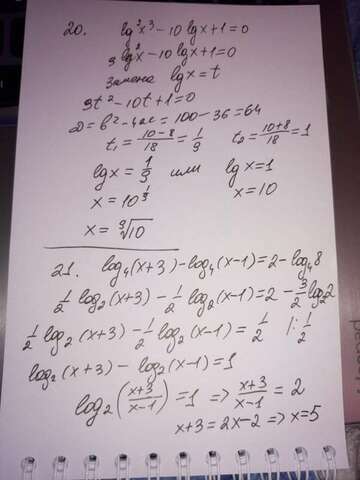 20. lg²x³ - 10 lg x + 1 = 0
9 lg²x - 10 lg x + 1 = 0
Замена lg x = t
9t² - 10t + 1 = 0
D = b² - 4ac = 100 - 36 = 64
t₁ = (10-8)/18 = 1/9 t₂ = (10+8)/18 = 1
lg x = 1/9 или lg x = 1
x = 10^(1/9) x = 10
x = ⁹√10
21. log₄(x+3) - log₄(x-1) = 2 - log₄8
1/2 log₂(x+3) - 1/2 log₂(x-1) = 2 - 3/2 log₂2
1/2 log₂(x+3) - 1/2 log₂(x-1) = 1/2 |: 1/2
log₂(x+3) - log₂(x-1) = 1
log₂((x+3)/(x-1)) = 1 => (x+3)/(x-1) = 2
x+3 = 2x-2 => x = 5